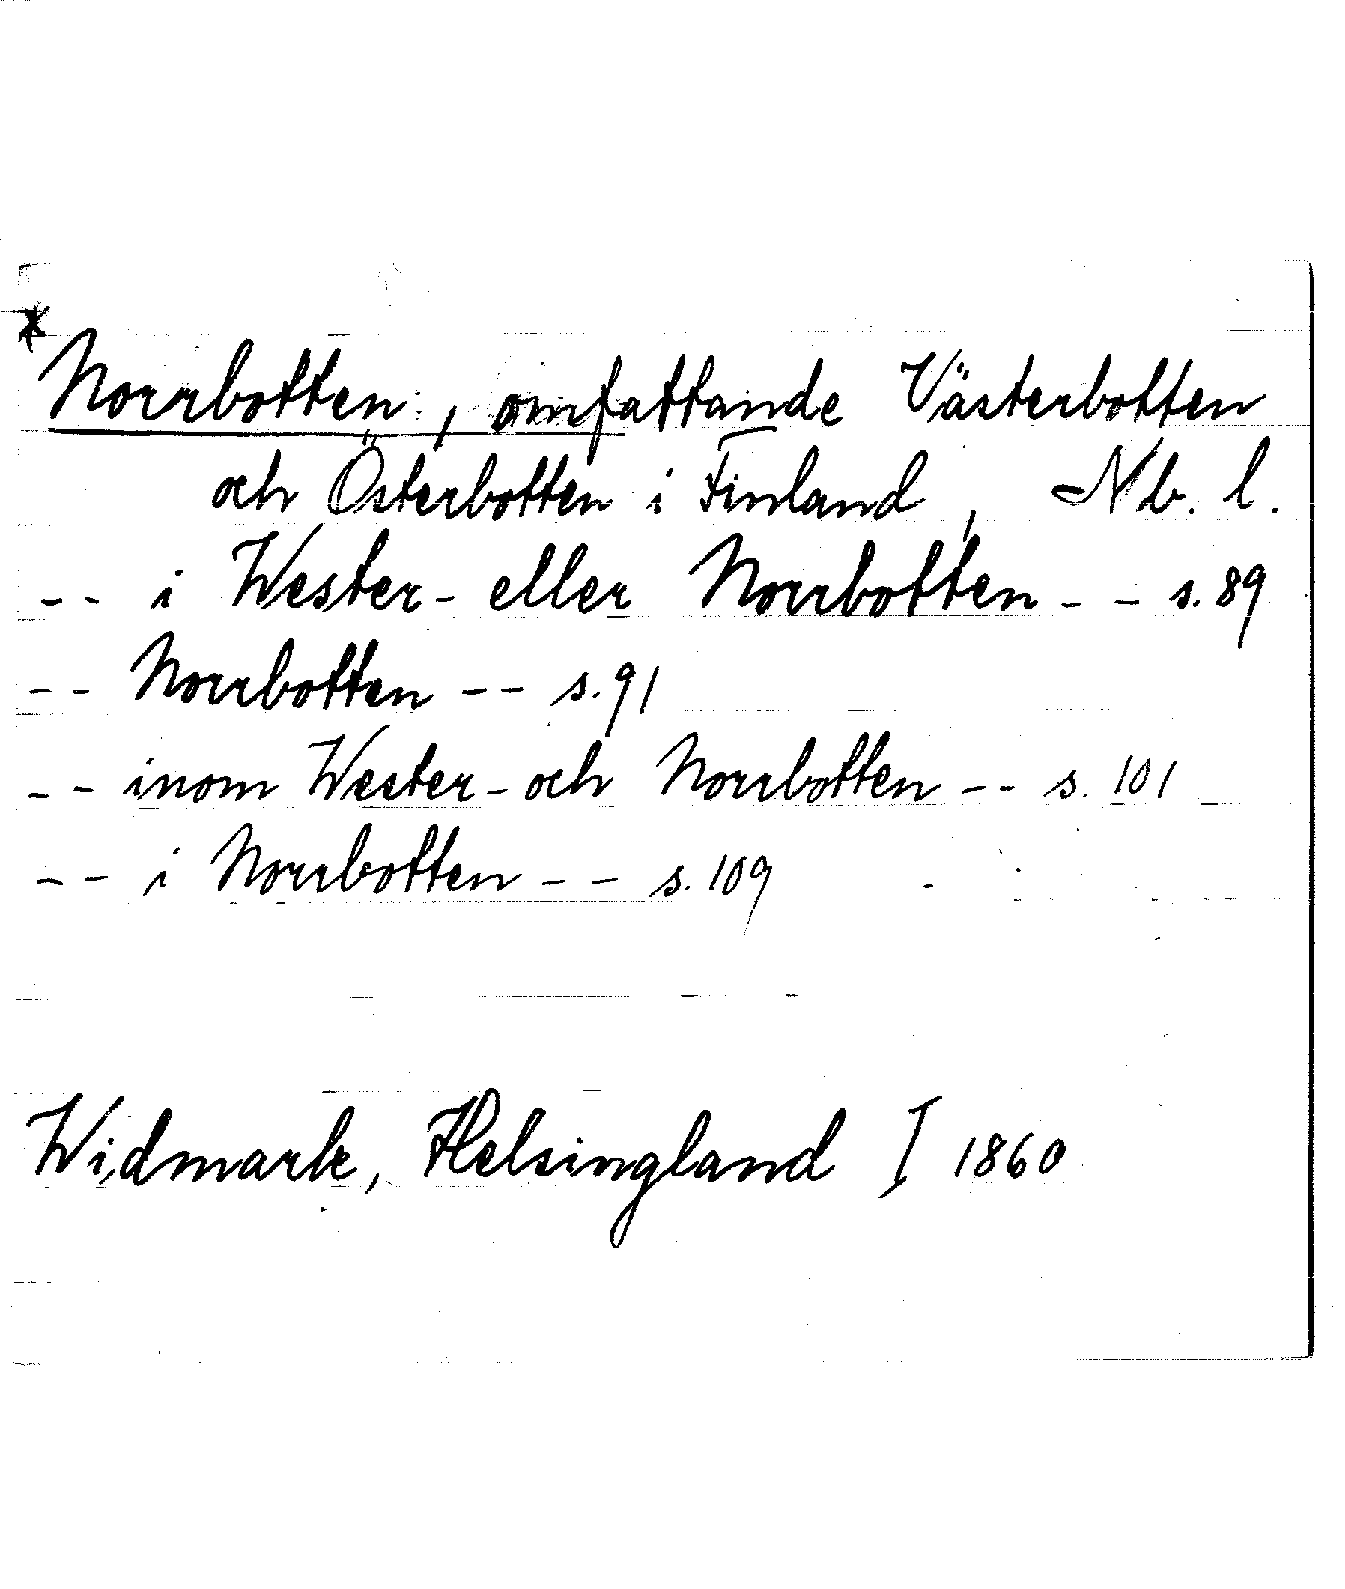 * Norrbotten, omfattande Västerbotten
och Österbotten i Finland, Nb. l.
-- i Wester- eller Norrbotten -- s. 89
-- Norrbotten -- s. 91
-- inom Wester- och Norrbotten -- s. 101
-- i Norrbotten -- s. 109
Widmark, Helsingland I 1860